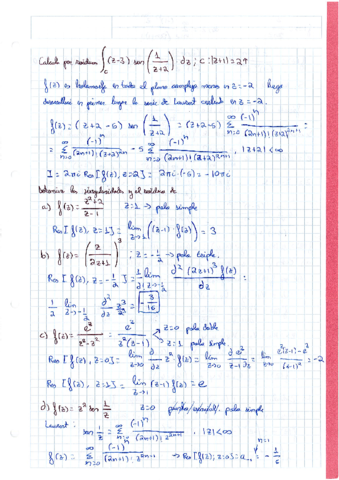 Calcule por residuos ∫_C (z-3) sen(1/(z+2)) dz ; C: |z+1|=2
f(z) es holomorfa en todo el plano complejo menos en z=-2.
desarrollar en primer lugar la serie de Laurent en z=-2.
f(z)=(z+2-5) sen(1/(z+2)) = (z+2-5) ∑_{n=0}^∞ (-1)^n/((2n+1)!(z+2)^{2n+1}) =
= ∑_{n=0}^∞ (-1)^n/((2n+1)!(z+2)^{2n}) - 5 ∑_{n=0}^∞ (-1)^n/((2n+1)!(z+2)^{2n+1}), |z+2|<∞
I = 2πi Res[f(z), z=2] = 2πi·(-5) = -10πi
Determine las singularidades y el residuo
a) f(z)= (z²+2)/(z-1)   z=1 → polo simple
Res[f(z), z=1] = lim_{z→1} ((z-1)·f(z)) = 3
b) f(z)= (z/(2z+1))³ ; z=-1/2 → polo triple.
Res[f(z), z=-1/2] = 1/2 lim_{z→-1/2} d² (2z+1)³ f(z)/dz =
1/2 lim_{z→-1/2} d²/dz z³/ = -3/16
c) f(z)= e^z/(z³-z²) = e^z/(z²(z-1)) → z=0 polo doble
z=1 polo simple.
Res[f(z), z=0] = lim_{z→0} d/dz z² f(z) = lim_{z→0} d/dz e^z/(z-1) = lim_{z→0} (e^z(z-1)-e^z)/(z-1)² = -2
Res[f(z), z=1] = lim_{z→1} (z-1) f(z) = e
d) f(z)= z² sen 1/z   z=0 polo simple
Laurent: sen 1/z = ∑_{n=0}^∞ (-1)^n/((2n+1)! z^{2n+1}), |z|<∞
n=1
f(z) = ∑_{n=0}^∞ (-1)^n/((2n+1)! z^{2n-1}) → Res[f(z); z=0] = a_{-1} = -1/6